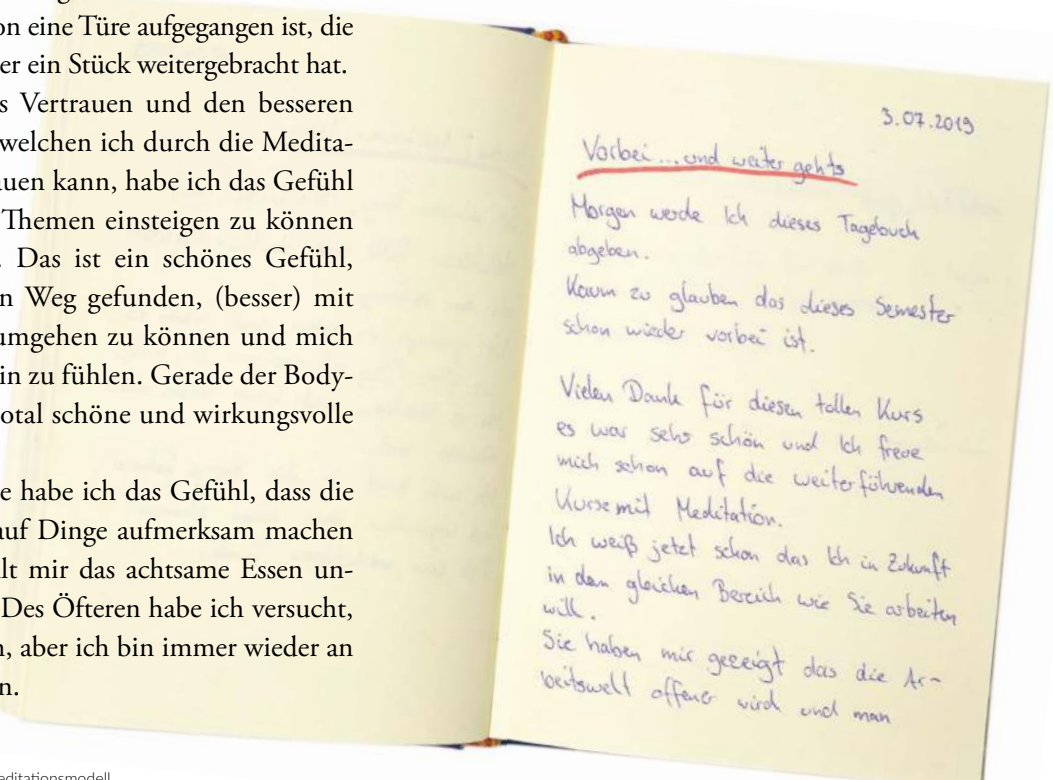 on eine Türe aufgegangen ist, die
er ein Stück weitergebracht hat.
s Vertrauen und den besseren
welchen ich durch die Medita-
auen kann, habe ich das Gefühl
Themen einsteigen zu können
. Das ist ein schönes Gefühl,
n Weg gefunden, (besser) mit
umgehen zu können und mich
in zu fühlen. Gerade der Body-
otal schöne und wirkungsvolle
e habe ich das Gefühl, dass die
auf Dinge aufmerksam machen
lt mir das achtsame Essen un-
Des Öfteren habe ich versucht,
n, aber ich bin immer wieder an
n.
editationsmodell
3.07.2019
Vorbei... und weiter gehts
Morgen werde Ich dieses Tagebuch
abgeben.
Kaum zu glauben das dieses Semester
schon wieder vorbei ist.
Vielen Dank für diesen tollen Kurs
es war sehr schön und Ich freue
mich schon auf die weiterführenden
Kurse mit Meditation.
Ich weiß jetzt schon das Ich in Zukunft
in dem gleichen Bereich wie Sie arbeiten
will.
Sie haben mir gezeigt das die Ar-
beitswelt offener wird und man